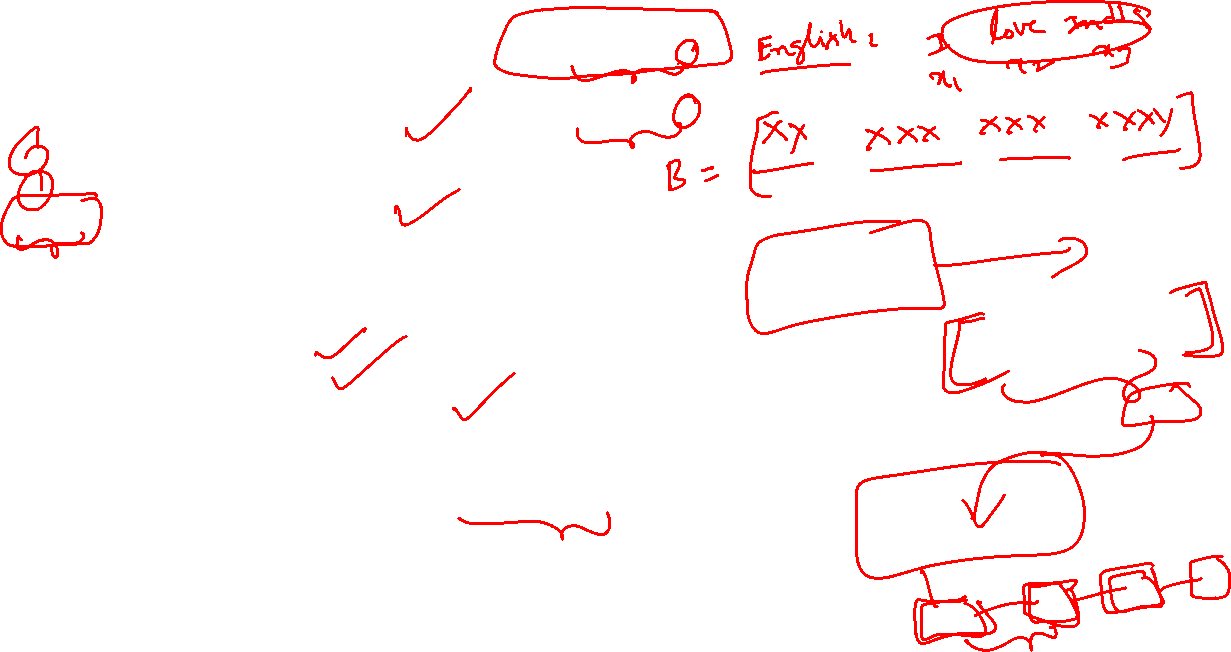 English: I love India
x1 x2 x3
B = [xy xxx xxx xxxy]